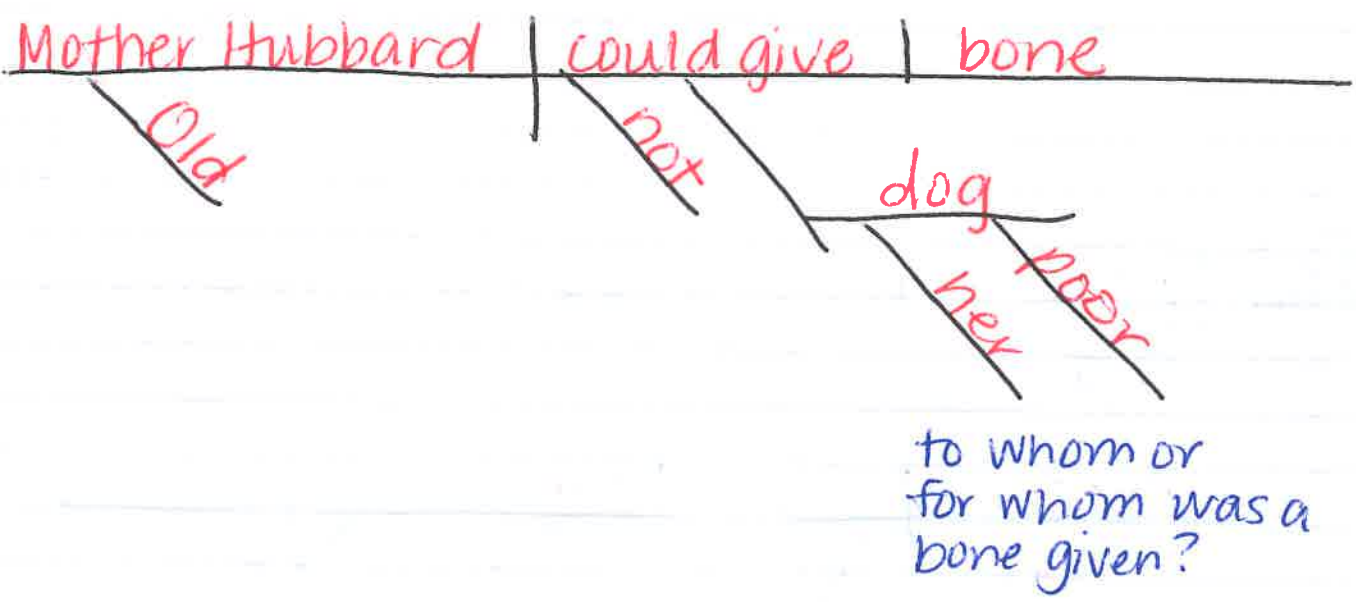 Mother Hubbard could give bone
Old
not
dog
her
poor
to whom or
for whom was a
bone given?